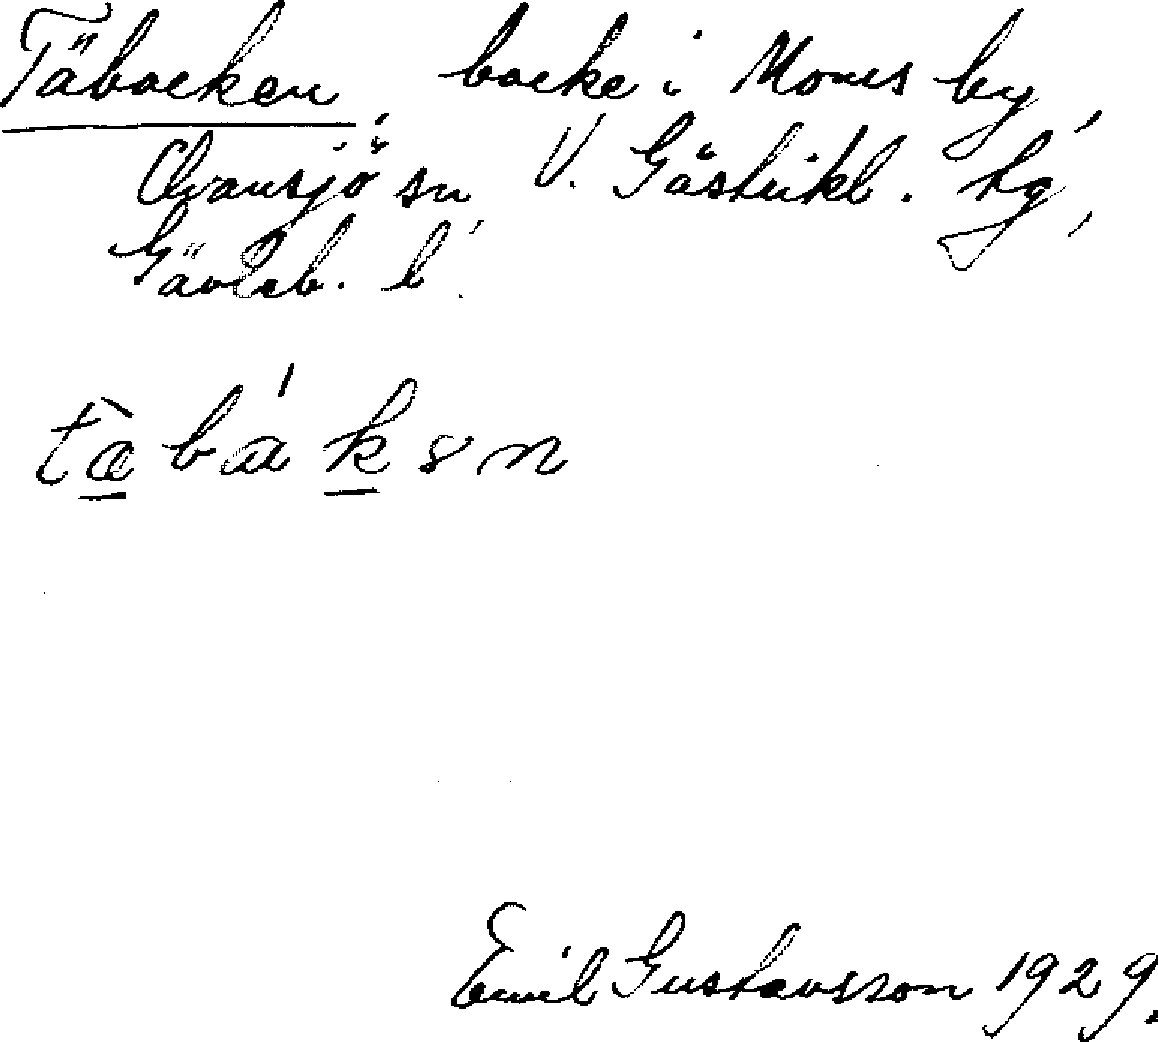 Täbacken, backe i Moms by,
Ovansjö sn V. Gästrikl. tg,
Gävleb. l.
Emil Gustavsson 1929.